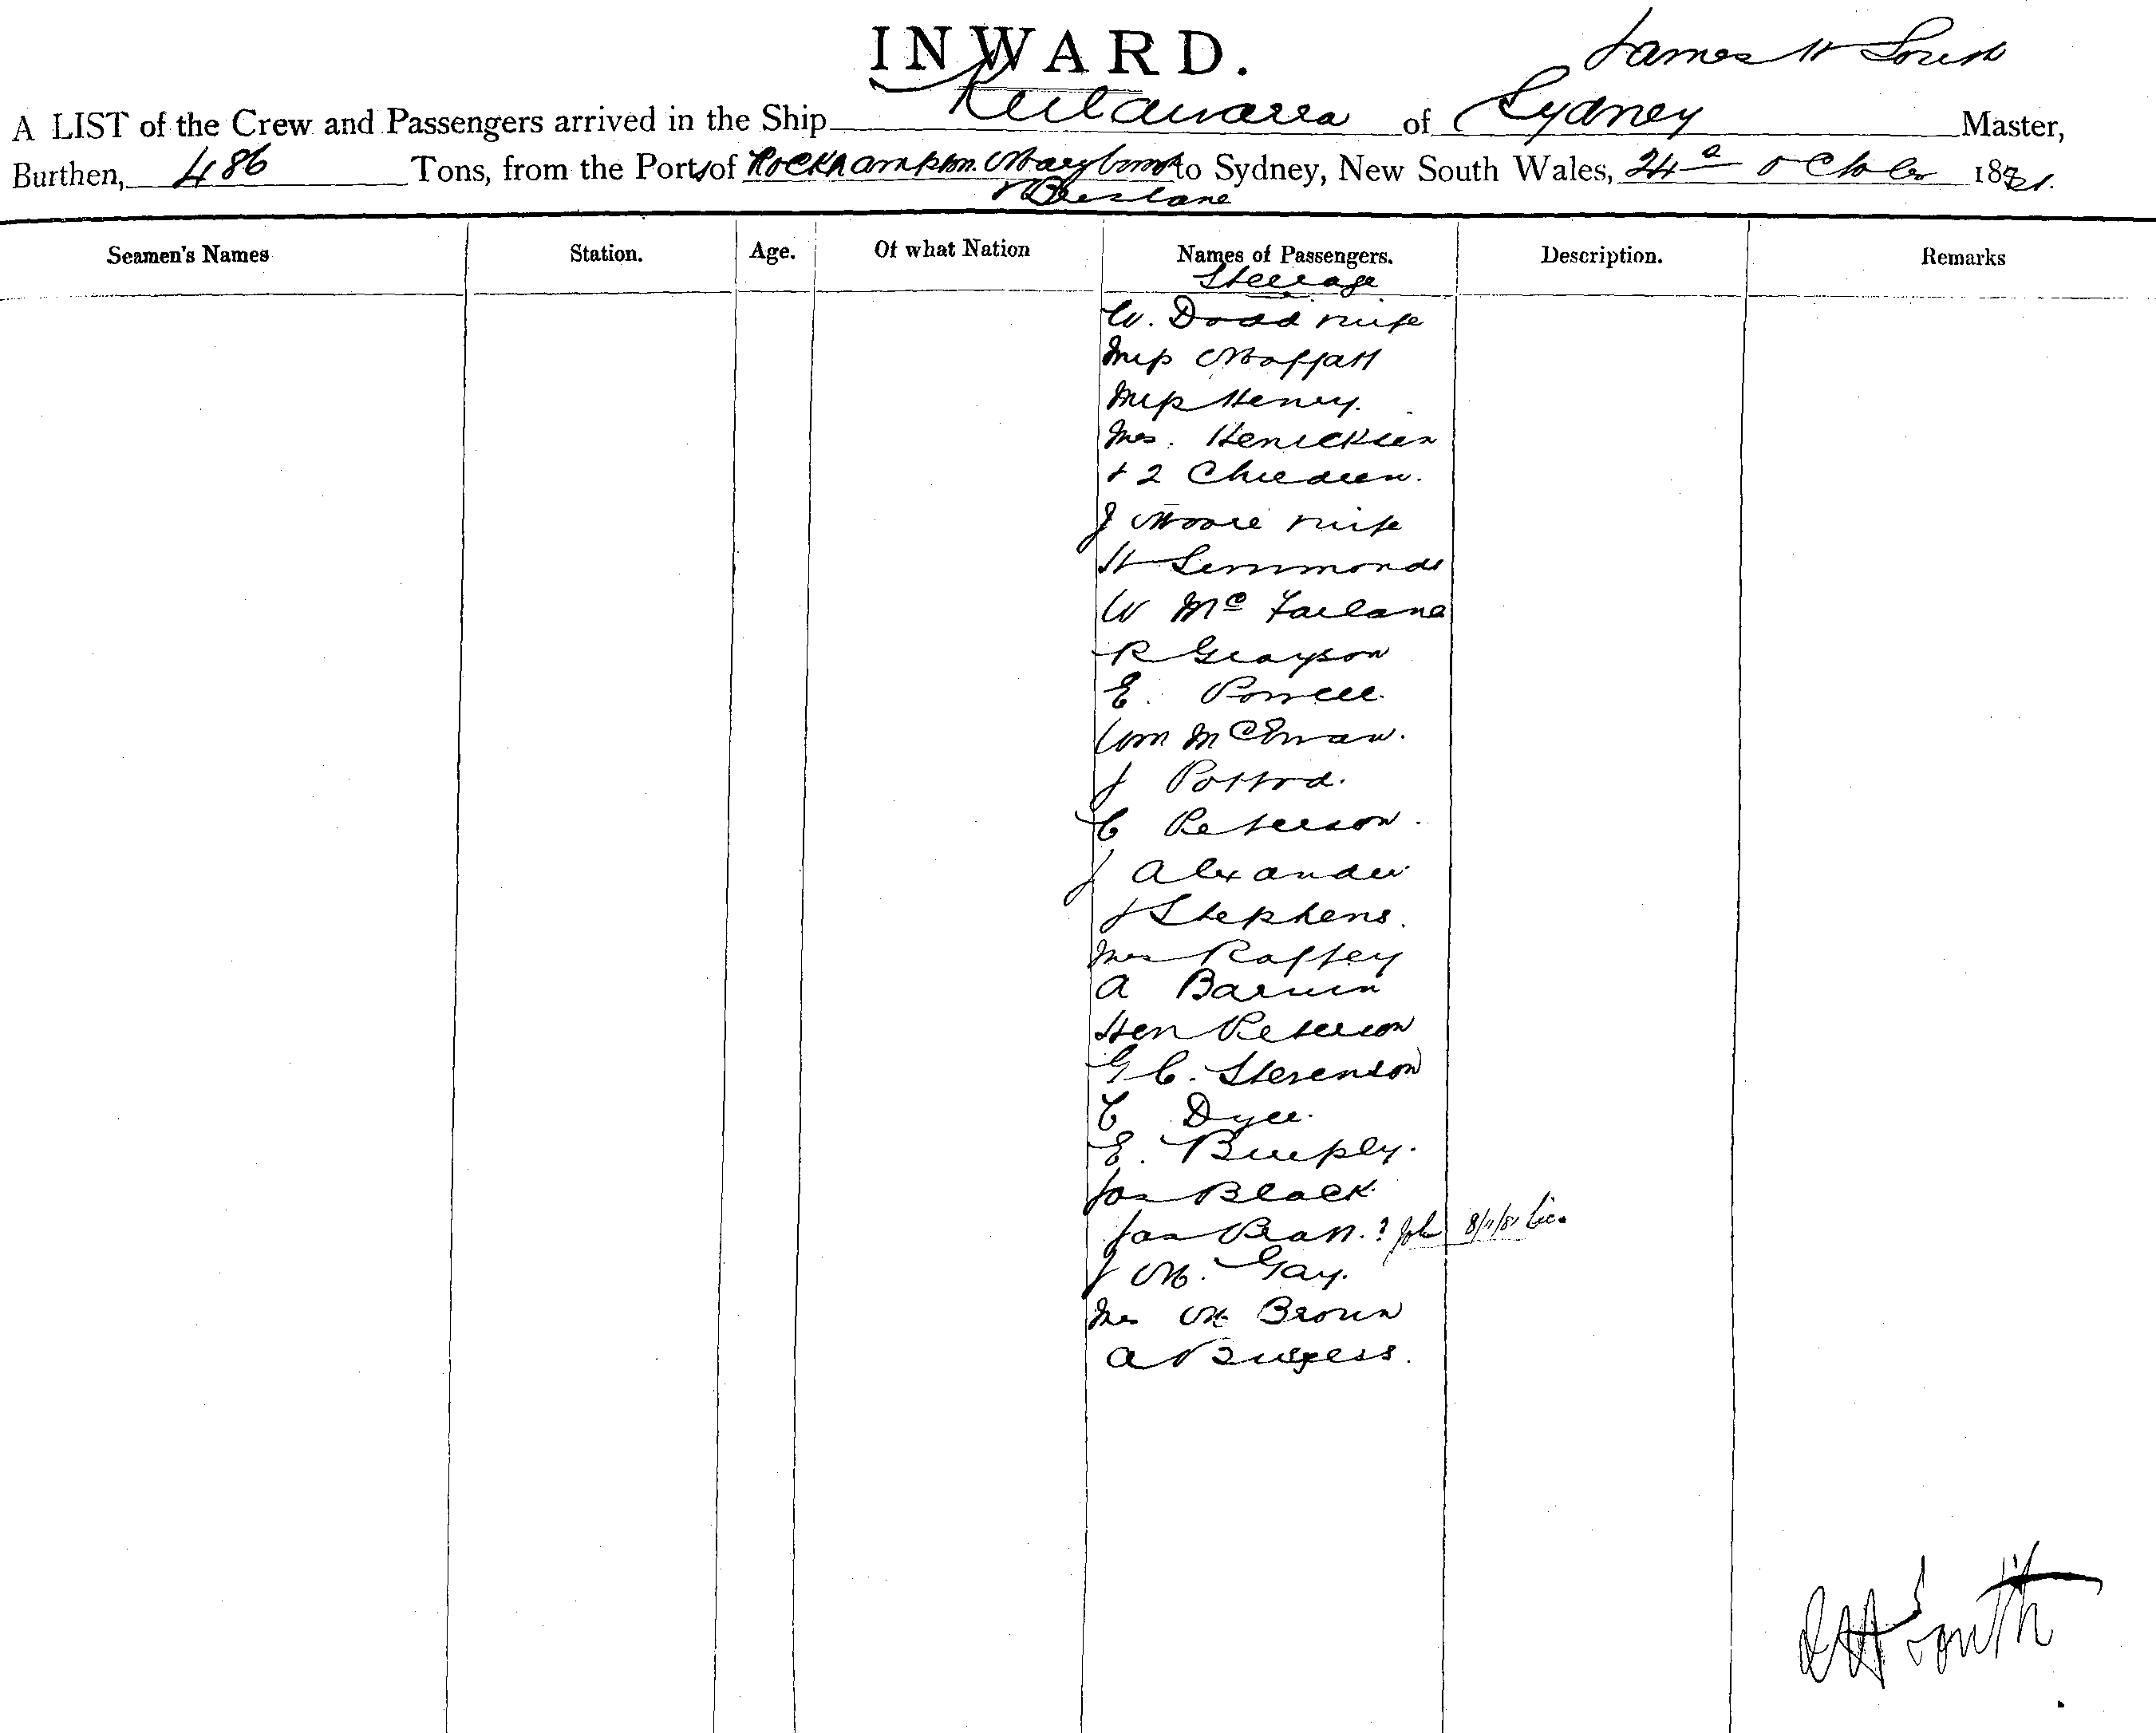 INWARD.
James H South
A LIST of the Crew and Passengers arrived in the Ship Keilawarra of Sydney Master,
Burthen, 486 Tons, from the Ports of Rockhampton. Maryboro to Sydney, New South Wales, 24th October 1881.
& Brisbane
Seamen's Names Station. Age. Of what Nation Names of Passengers. Description. Remarks
Steerage
W. Dodd & wife
Miss Moffatt
Miss Henry.
Mrs. Hericksen
& 2 Children.
J Moore & wife
H Simmonds
W McFarlane
R Grayson
E. Powell.
Wm McEwan.
J
C Peterson.
J Alexander
J Stephens.
Mrs Raftey
A
Hen Peterson
G C. Stevenson
C Dyer.
E.
Jas Black.
Jas Bratt.? John 8/11/81 Lic.
J M. Gay.
Mrs M Brown
A Burgess.
JH South